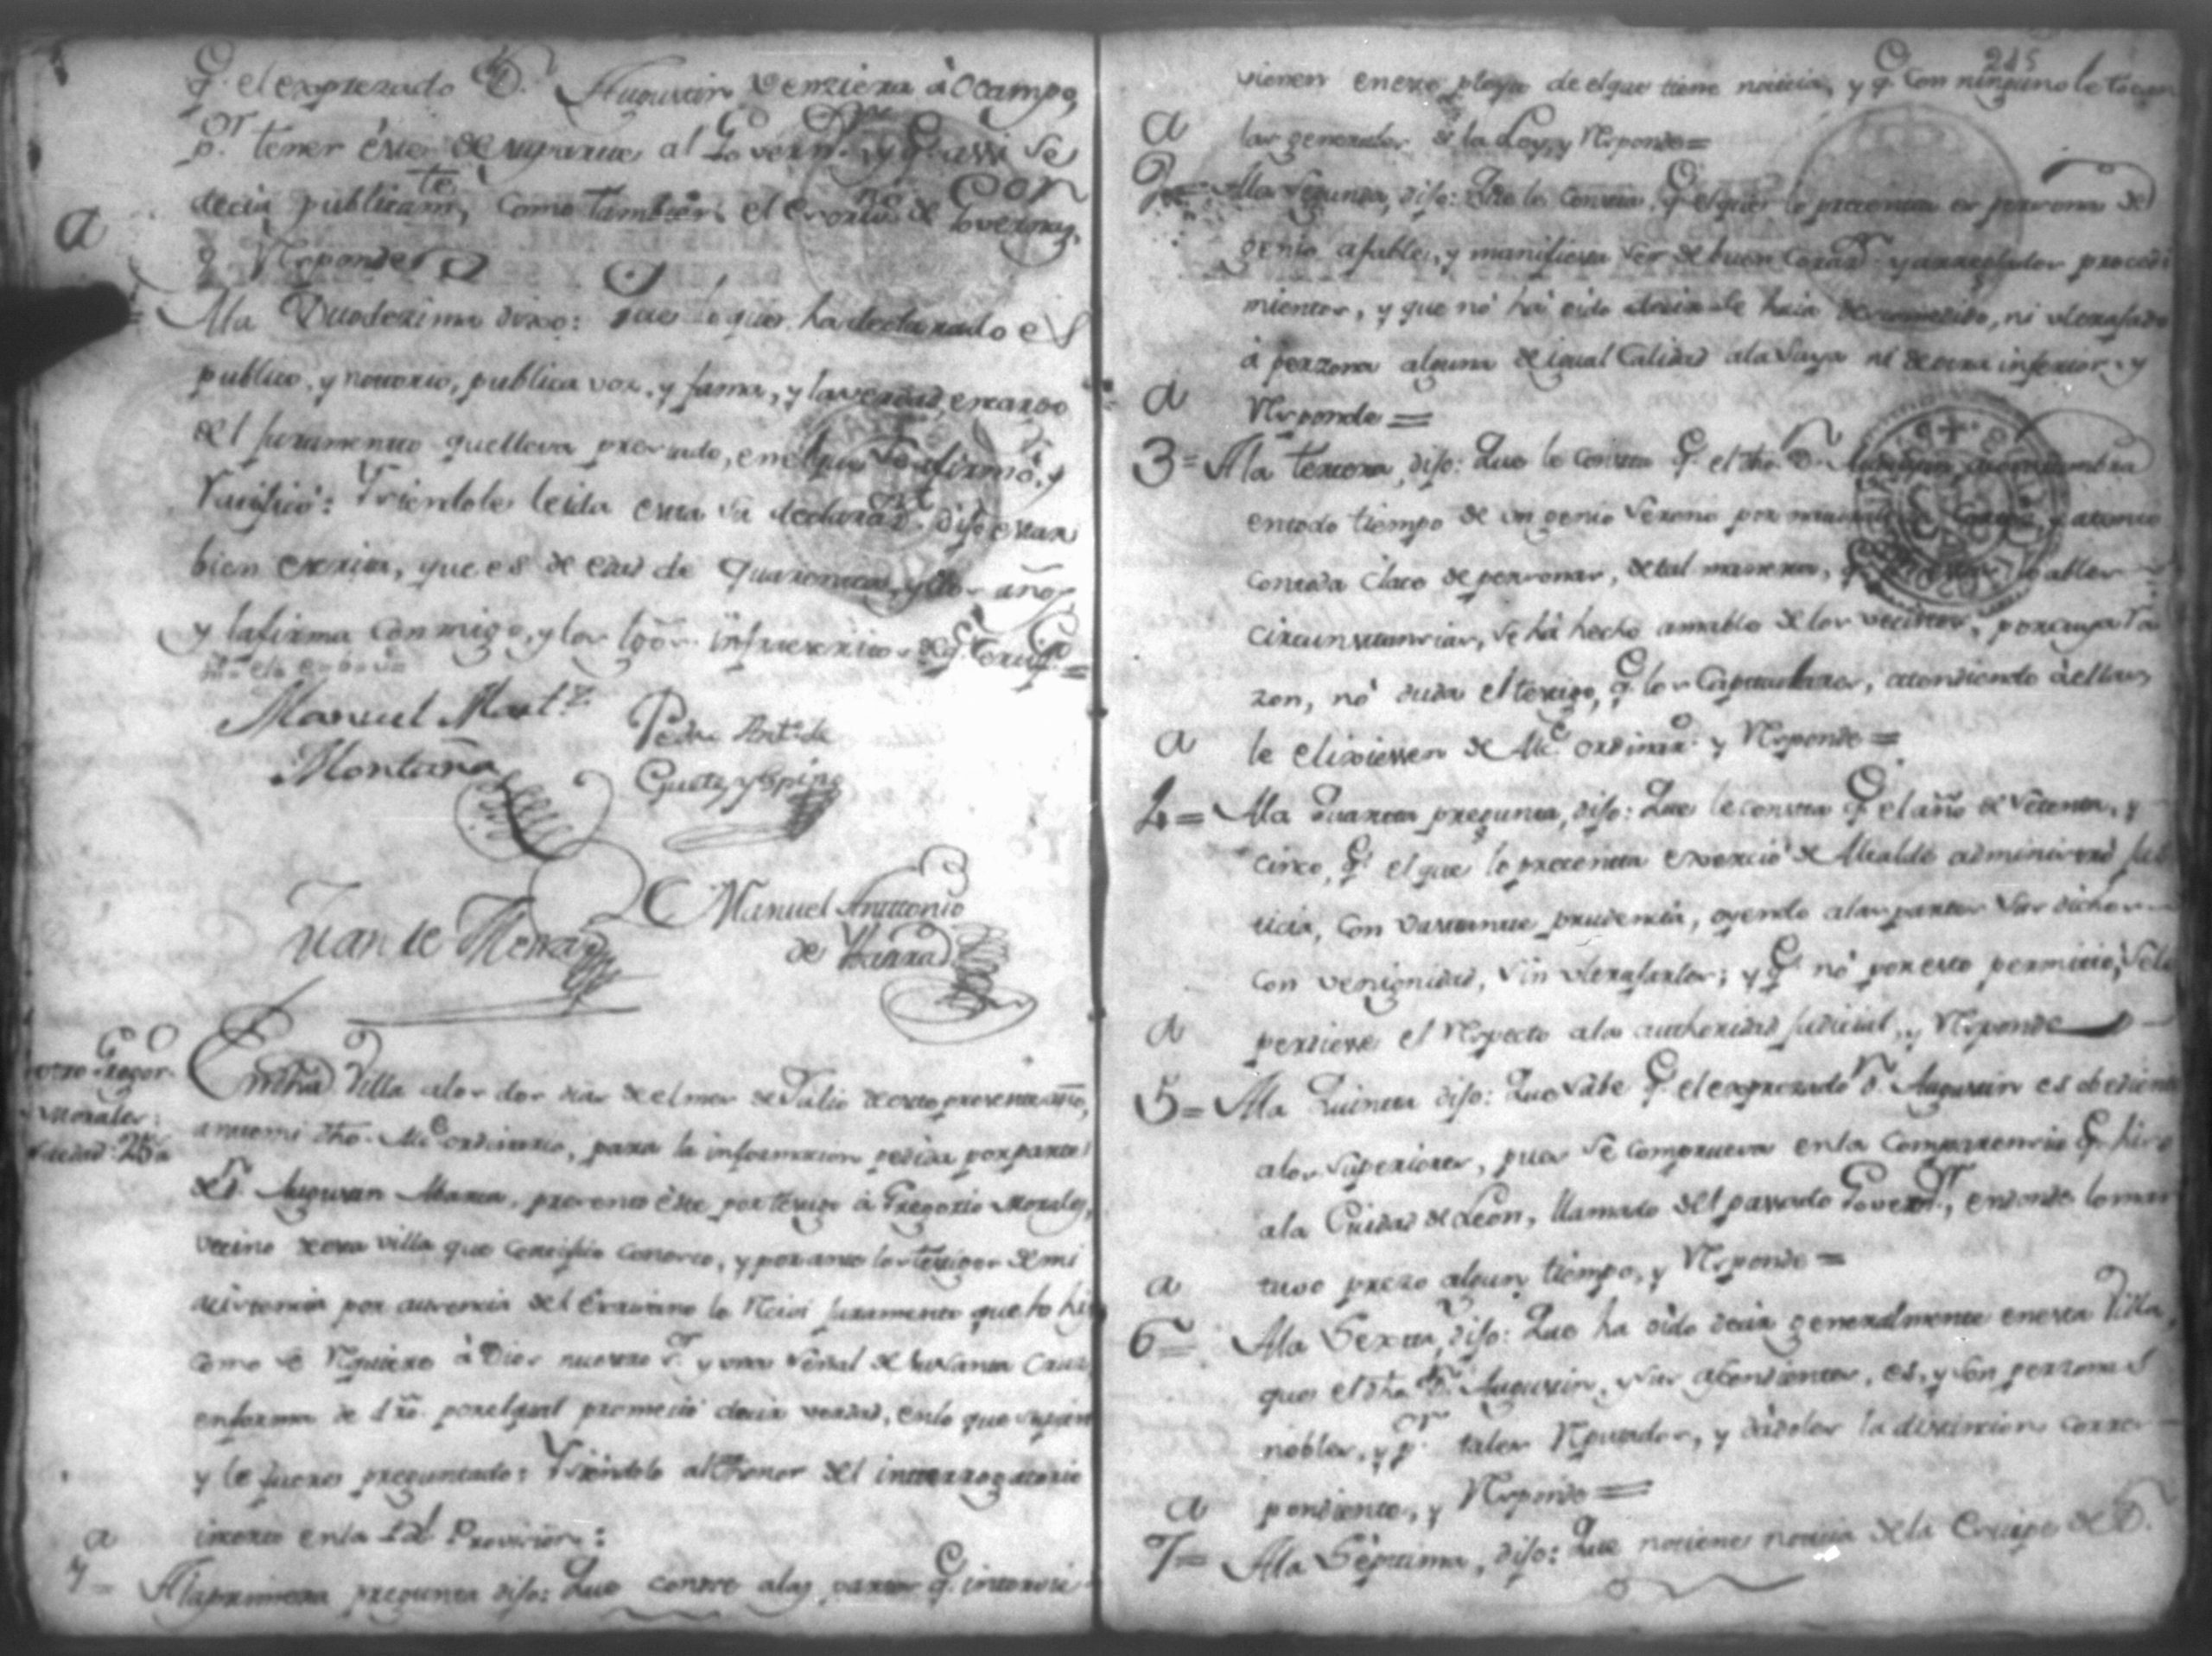 q.e el expresado D.n Augustin venziera à Ocampo,
p.or tener este de su parte al Govern.or y q.e assi se
decia publicam.te, como tambien el
a
y Responde
A la Duodezima dixo: que lo que ha declarado es
publico, y notorio, publica voz, y fama, y la verdad, en cargo
del juramento que lleva prestado, en el que se afirmó, y
ratificó: Y siendole leida esta su declaraz.n dijo estar
bien escrita, que es de edad de quarenta y dos años
y la firma conmigo, y los tgos. infraescritos de q.e certifico =
Manuel Mart.z
Montaña
Pedro Ant.o de
Gueta y Espino
Juan de Herrad
Manuel Anttonio
de Herrad
otro Gregor.o
Morales:
edad: 25 a
En dha Villa a los dos dias de el mes de Julio de este presente año,
ante mi dho. Alc.e ordinario, para la informacion pedida por parte
de D.n Augustin Abarca, presento éste por testigo à Gregorio Morales,
vecino de esta villa que certifico conosco, y por ante los testigos de mi
asistencia por ausencia del Escrivano le Recivi juramento que lo hizo
como se Requiere à Dios nuestro S.r y una señal de su Santa Cruz
en forma de dro. por el qual prometió decir verdad, en lo que supiere
y le fuere preguntado: Y siendolo al thenor del interrogatorio
a
inserto en la R.l Provision:
1 = A la primera pregunta dijo: Que conose a las partes q.e intervie-
215
vienen en este pleyto de el que tiene noticia, y q.e con ninguno le tocan
a
las generales de la Ley, y Responde =
2 = A la Segunda, dijo: Que le consta q.e el que lo presenta es persona de
genio afable, y manifiesta ser de buen Coraz.n y arreglados procedi
mientos, y que no ha oido decir le haia ni ultrajado
à perzona alguna de igual Calidad a la Suya ni de otra inferior, y
a
Responde =
3 = A la tercera, dijo: Que le consta q.e el dho. D.n Augustin acostumbra
en todo tiempo de un genio Sereno por y atento
con toda clace de personas, de tal manera, q.e
circunstancias, se ha hecho amable de los vecinos, por cuya ra
zon, no duda el testigo, q.e los Capitulares, atendiendo à ellas
a
le elixiessen de Alc.e ordinar.o y Responde =
4 = A la Quarta pregunta, dijo: Que le consta q.e el año de setenta, y
cinco, q.e el que lo presenta exerció de Alcalde administró jus
ticia, con vastante prudencia, oyendo a las partes sus dichos
con venignidad, sin ultrajarlos; y q.e no por esto permitió, se le
a
perdiese el Respecto a la authoridad judicial, y Responde
5 = A la Quinta dijo: Que sabe q.e el expresado D.n Augustin es obediente
a los Superiores, pues se comprueva en la Comparencia q.e hiso
a la Ciudad de Leon, llamado del passado Govern.or, en donde lo man
a
tuvo prezo algun tiempo, y Responde =
6 = A la Sexta, dijo: Que ha oido decir generalmente en esta Villa,
que el dho. D.n Augustin, y sus acendientes, es, y son perzonas
nobles, y p.or tales Reputados, y dádoles la distincion corres-
a
pondiente, y Responde =
7 = A la Septima, dijo: Que no tiene noticia de la Estirpe de D.n